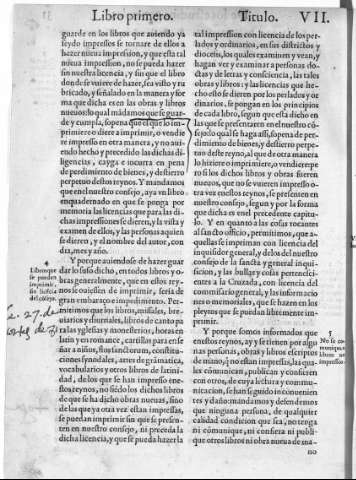 Libro primero.
Titulo. VII
guarde en los libros que auiendo ya
seydo impressos se tornare de ellos a
hazer nueua impression, y que esta tal
nueua impression, no se pueda hazer
sin nuestra licencia, y sin que el libro
donde se vuiere de hazer, sea visto y ru-
bricado, y señalado en la manera y for
ma que dicha es en las obras y libros
nueuos: lo qual mãdamos que se guar-
de y cumpla, so pena que el que lo im-
primiere o diere a imprimir, o vendie
re impresso en otra manera, y no auiẽ-
endo hecho y precedido las dichas di-
ligencias, cayga e incurra en pena
de perdimiento de bienes, y destierro
perpetuo destos reynos. Y mandamos
que en el nuestro consejo, aya vn libro
enquadernado en que se ponga por
memoria las licencias que para las di-
chas impressiones se dieren, y la vista y
examen de ellos, y las personas a quien
se dieren, y el nombre del autor, con
dia, mes y año.
4
Libros que
se pueden
imprimir,
sin licẽcia
del cõsejo.
Y porque auiendose de hazer guar
dar lo suso dicho, en todos los libros y o-
bras generalmente, que en estos rey-
nos se ouiessen de imprimir, seria de
gran embaraço e impedimento. Per-
mitimos que los libros, missales, bre-
uiarios y diurnales, libros de canto pa
ra las yglesias y monesterios, horas en
latin y en romance, cartillas para ense
ñar a niños, flos sanctorum, constitu-
ciones synodales, artes de grãmatica,
vocabularios y otros libros de latini-
dad, de los que se han impresso en e-
stos reynos, no siẽdo los dichos libros
de que se ha dicho obras nueuas, sino
de las que ya otra vez estan impressas,
se puedan imprimir sin que se presen-
ten en nuestro consejo, ni preceda la
dicha licencia, y que se pueda hazer la
tal impression con licencia de los per-
lados y ordinarios, en sus districtos y
diocesis, los quales examinen y vean, y
hagan ver y examinar a personas do-
ctas y de letras y consciencia, las tales
obras y libros: y las licencias que he-
cho esto se dieren por los perlados y or
dinarios, se pongan en los principios
de cada libro, segun que esta dicho en
las que se presentaren en el nuestro cõ-
sejo: lo qual se haga assi, so pena de per-
dimiento de bienes, y destierro perpe-
tuo deste reyno, al que de otra manera
lo hiziere o imprimiere, o vendiere: pe
ro si los dichos libros y obras fueren
nueuos, que no se vuieren impresso o-
tra vez en estos reynos, se presenten en
nuestro consejo, segun y por la forma
que dicha es en el precedente capitu-
lo. Y en quanto a las cosas tocantes
al sancto officio, permitimos, que a-
quellas se impriman con licencia del
inquisidor general, y de los del nuestro
consejo de la sancta y general inqui-
sicion, y las bullas y cosas pertenescí-
entes a la Cruzada, con licencia del
commissario general, y las informacio
nes o memoriales, que se hazen en los
pleytos que se puedan libremente im-
primir.
5
Y porque somos informados que
en estos reynos, ay y se tienen por algu
nas personas, obras y libros escriptos
de mano, q̃ no estan impressas, las qua-
les cõmunican, publican y confieren
con otros, de cuya lectura y commu-
nicacion, se han seguido inconuenien-
tes y daño: mandamos y defendemos
que ninguna persona, de qualquier
calidad condicion que sea, no tenga
ni cõmunique, ni confiera ni publi-
que otros libros ni obra nueua de ma-
no